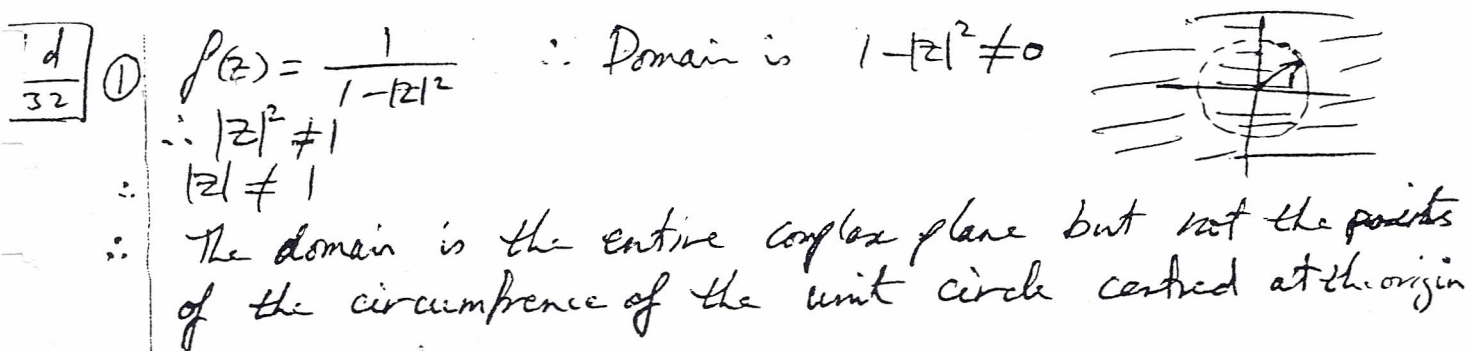 d/32 ① f(z) = 1/(1-|z|²) ∴ Domain is 1-|z|² ≠ 0
∴ |z|² ≠ 1
∴ |z| ≠ 1
∴ The domain is the entire complex plane but not the points
of the circumfrence of the unit circle centred at the origin